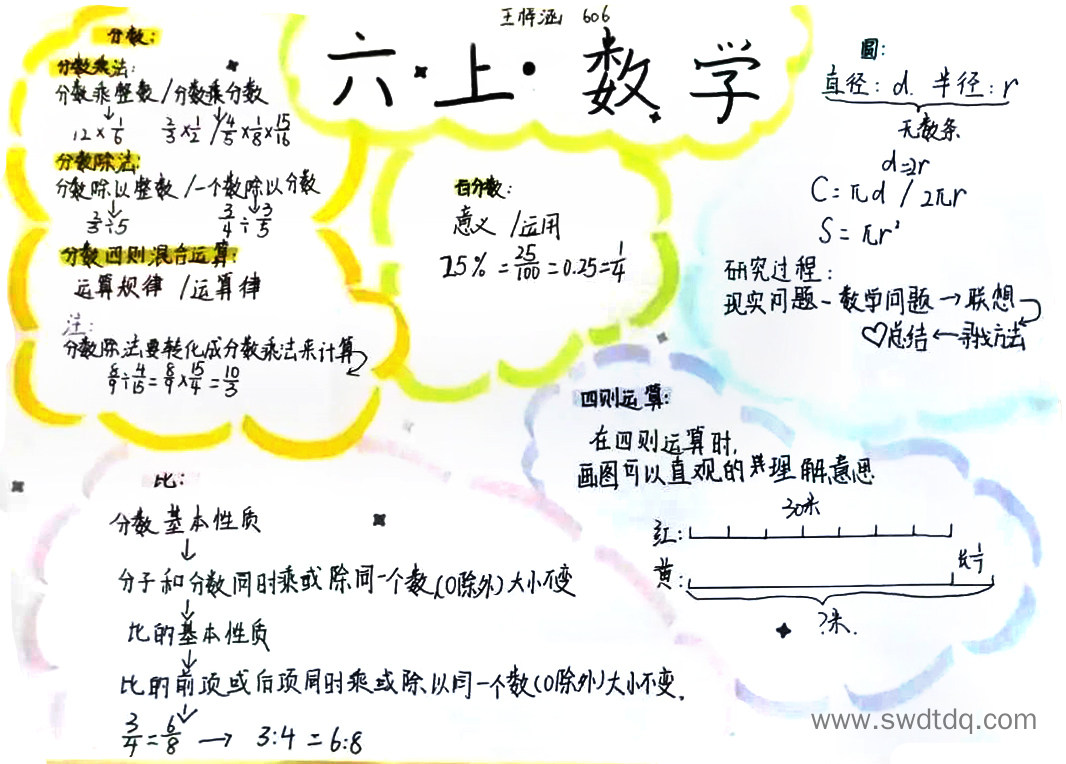 王怿涵 606
六·上·数学
分数:
分数乘法:
分数乘整数/分数乘分数
12×1/6 2/3×1/2 / 4/5×1/8×15/16
分数除法:
分数除以整数/一个数除以分数
2/3÷5 3/4÷3/5
分数四则混合运算:
运算规律/运算律
注:
分数除法要转化成分数乘法来计算
8/9÷4/15=8/9×15/4=10/3
百分数:
意义/运用
25%=25/100=0.25=1/4
圆:
直径:d. 半径:r
无数条
d=2r
C=πd/2πr
S=πr²
研究过程:
现实问题-数学问题→联想
♡总结←寻找方法
四则运算:
在四则运算时,
画图可以直观的理解意思
30米
红:
黄:
?米.
比:
分数基本性质
↓
分子和分数同时乘或除同一个数(0除外)大小不变
↓
比的基本性质
↓
比的前项或后项同时乘或除以同一个数(0除外)大小不变.
↓
3/4=6/8→3:4=6:8
www.swdtdq.com